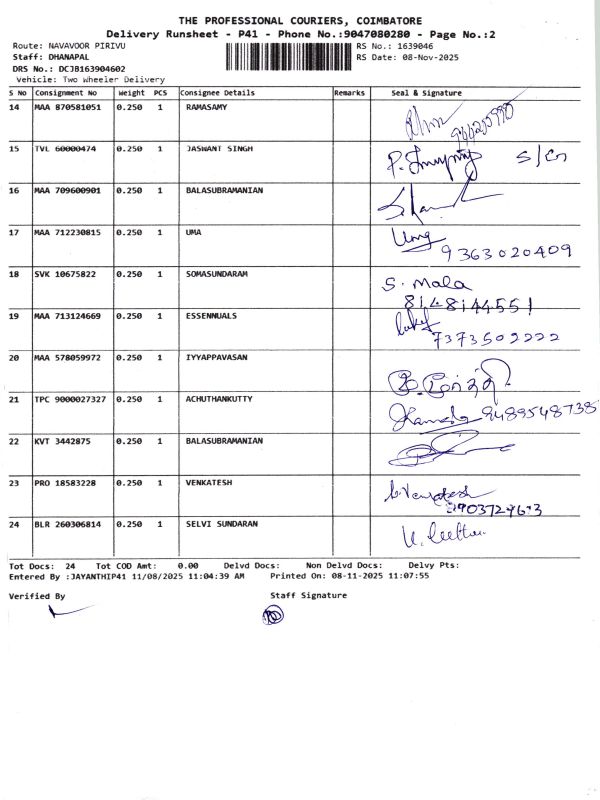 THE PROFESSIONAL COURIERS, COIMBATORE
Delivery Runsheet - P41 - Phone No.:9047080280 - Page No.:2
Route: NAVAVOOR PIRIVU RS No.: 1639046
Staff: DHANAPAL RS Date: 08-Nov-2025
DRS No.: DCJB163904602
Vehicle: Two Wheeler Delivery
S No Consignment No Weight PCS Consignee Details Remarks Seal & Signature
14 MAA 870581051 0.250 1 RAMASAMY
15 TVL 60000474 0.250 1 JASWANT SINGH
16 MAA 709600901 0.250 1 BALASUBRAMANIAN
17 MAA 712230815 0.250 1 UMA Uma
9363020409
18 SVK 10675822 0.250 1 SOMASUNDARAM S. Mala
8148144551
19 MAA 713124669 0.250 1 ESSENNUALS
7373502222
20 MAA 578059972 0.250 1 IYYAPPAVASAN
21 TPC 9000027327 0.250 1 ACHUTHANKUTTY 9489548738
22 KVT 3442875 0.250 1 BALASUBRAMANIAN
23 PRO 18583228 0.250 1 VENKATESH Venkatesh
24 BLR 260306814 0.250 1 SELVI SUNDARAN
Tot Docs: 24 Tot COD Amt: 0.00 Delvd Docs: Non Delvd Docs: Delvy Pts:
Entered By :JAYANTHIP41 11/08/2025 11:04:39 AM Printed On: 08-11-2025 11:07:55
Verified By Staff Signature